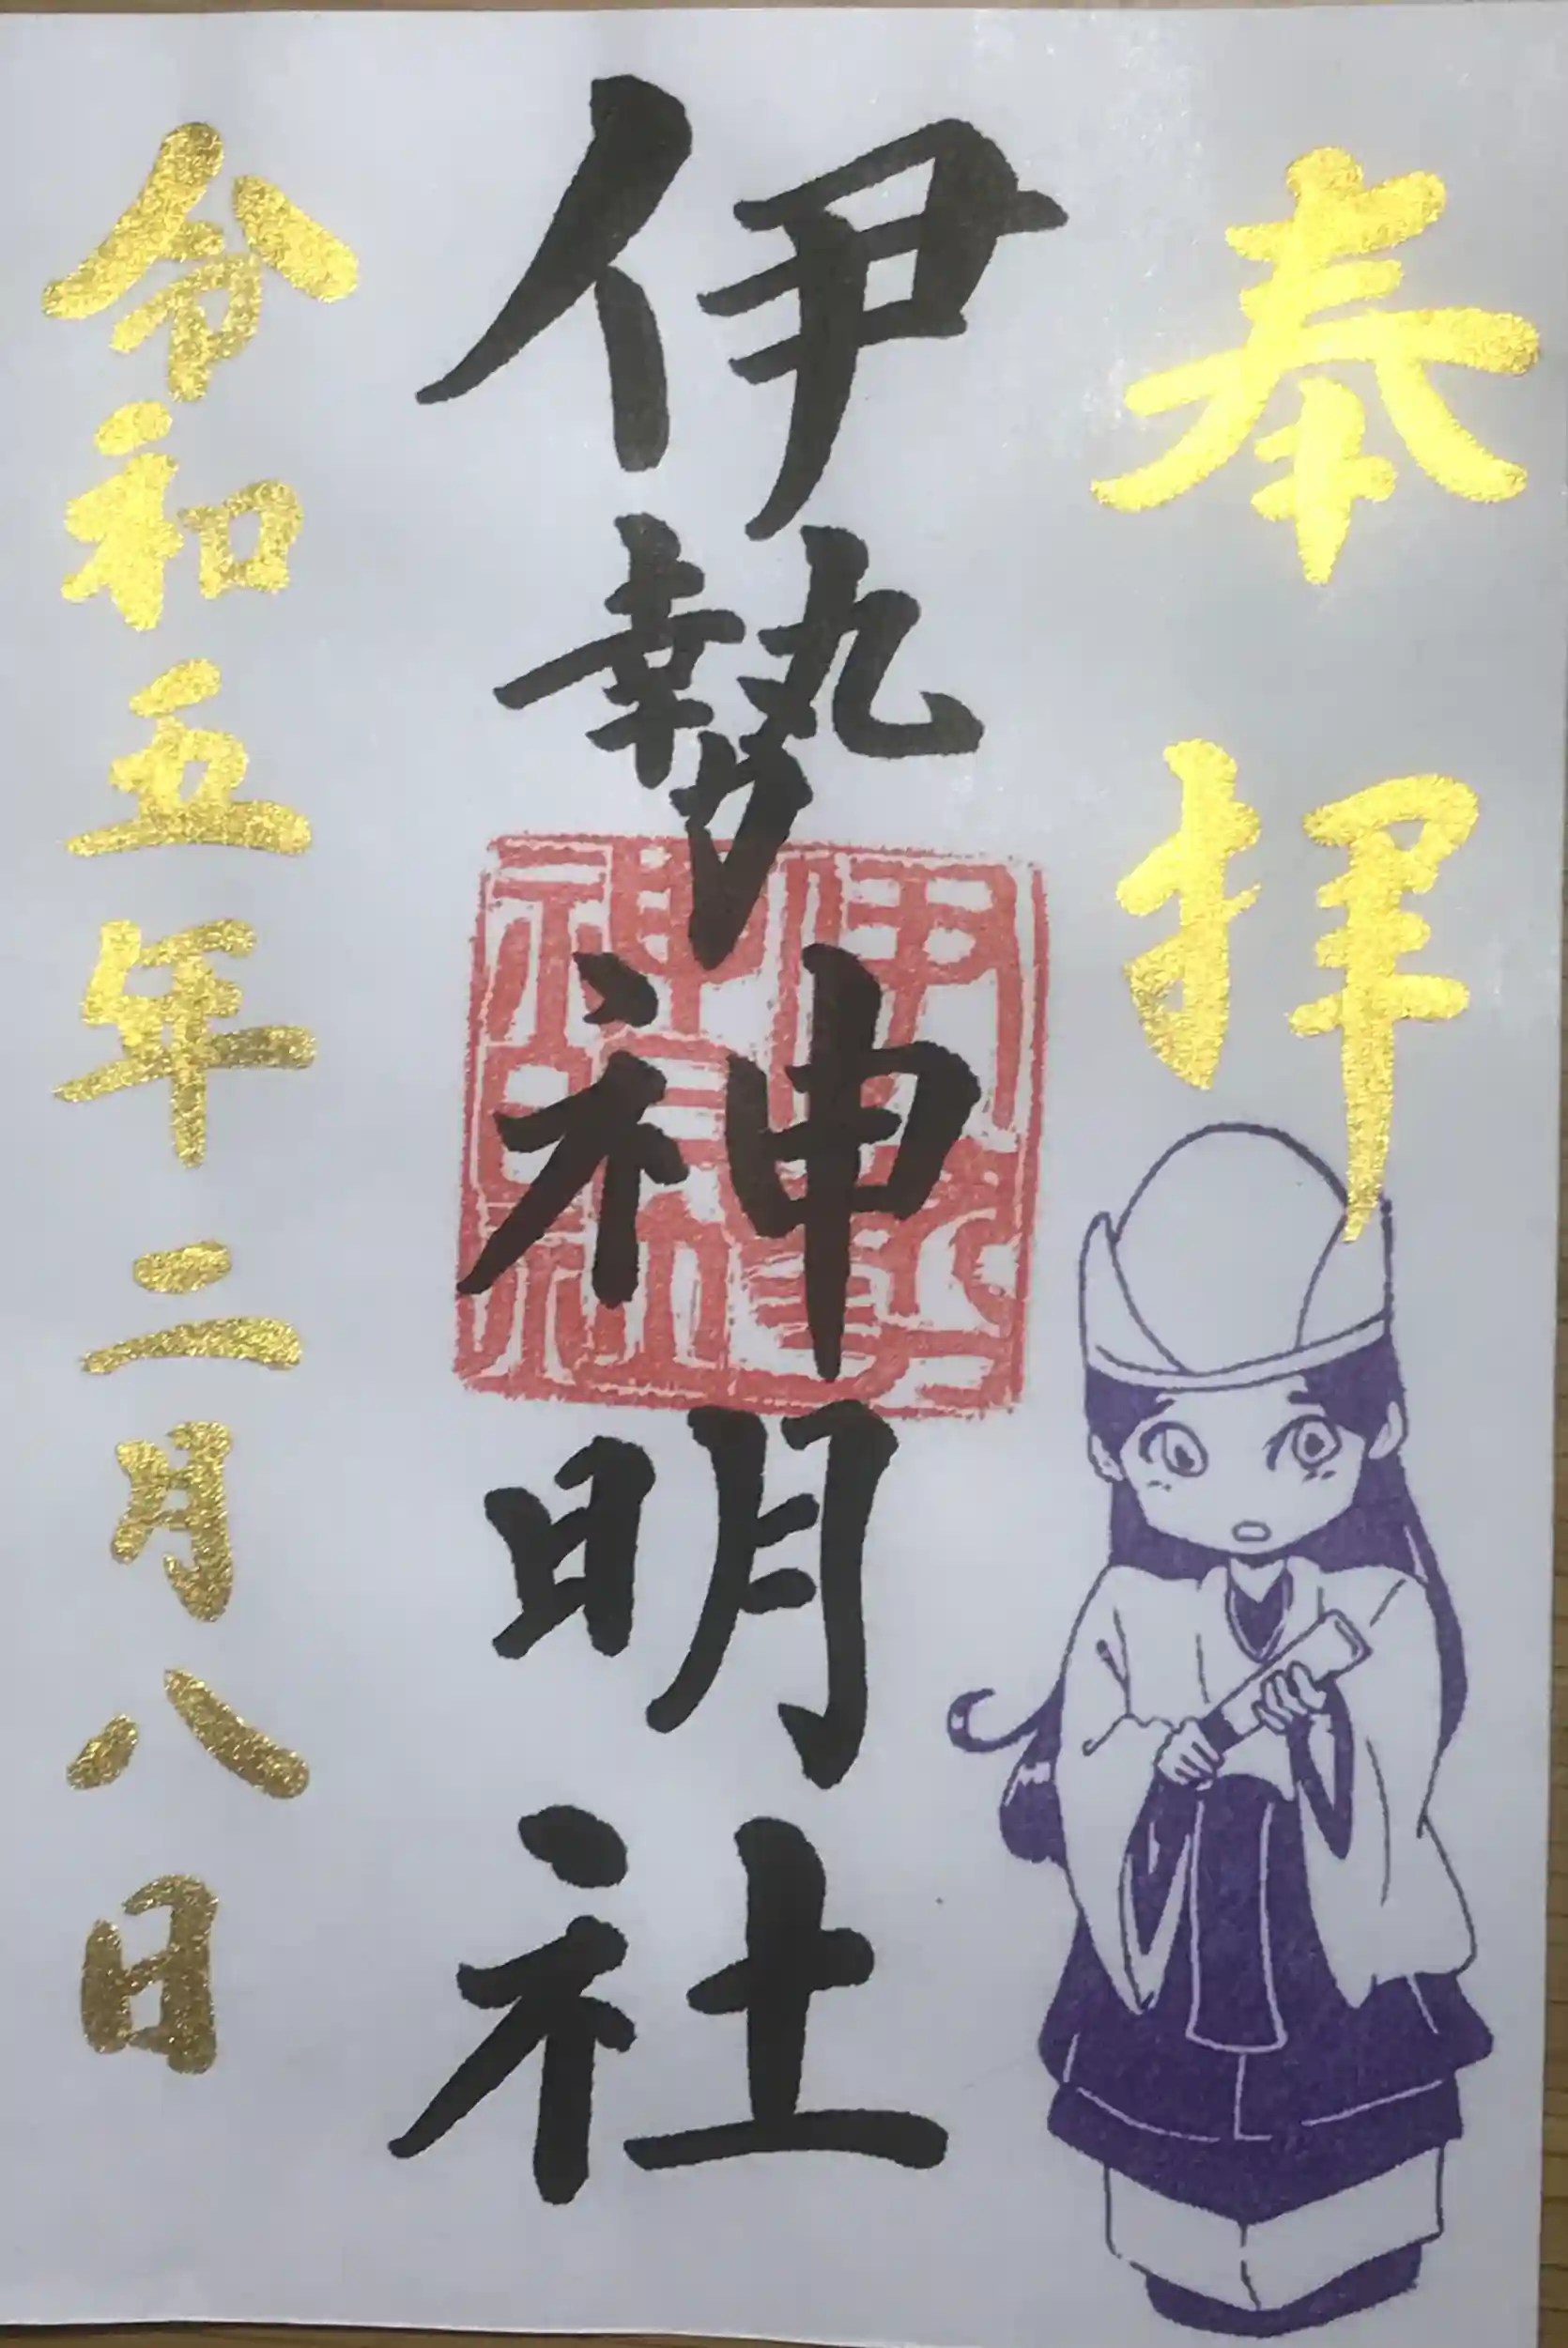 奉拝
伊勢神明社
令和五年二月八日
伊勢
神明社